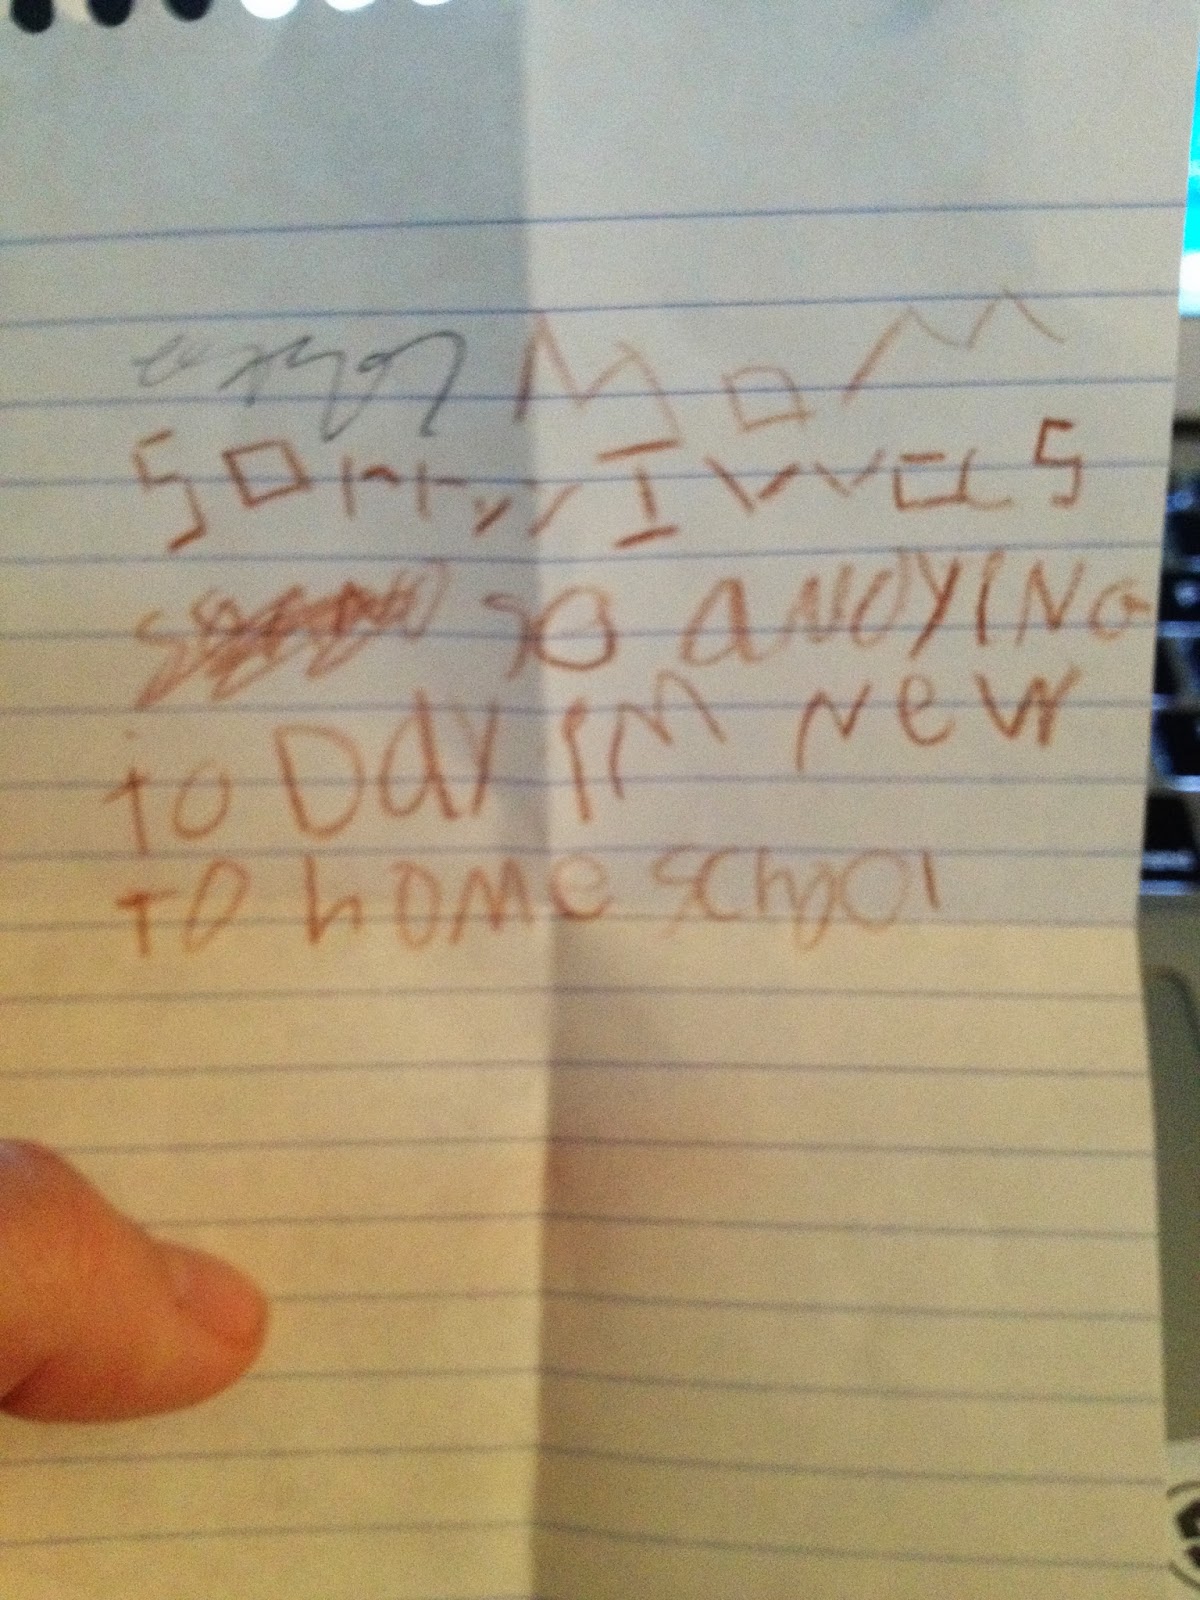 Mom
Sorry I was
so anoying
to Day I'm new
To home school